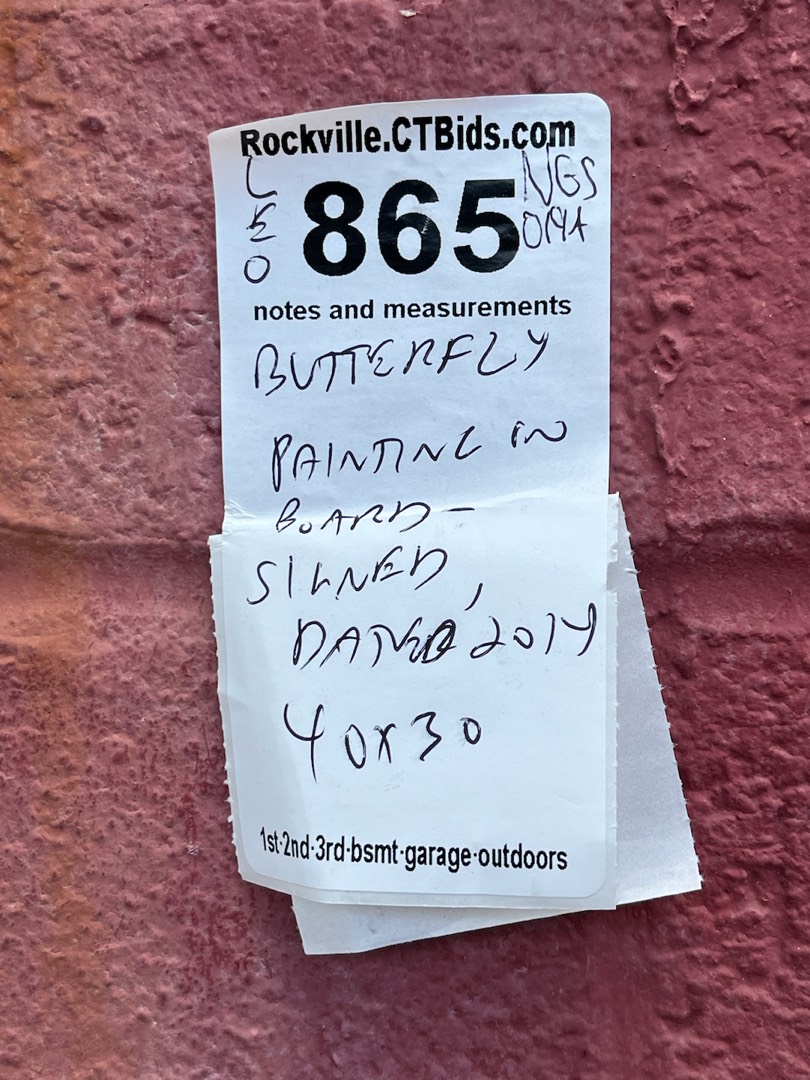 Rockville.CTBids.com
LEO
865
NGS
notes and measurements
BUTTERFLY
PAINTING
BOARD -
SIGNED,
DATED 2014
40x30
1st·2nd·3rd·bsmt·garage·outdoors